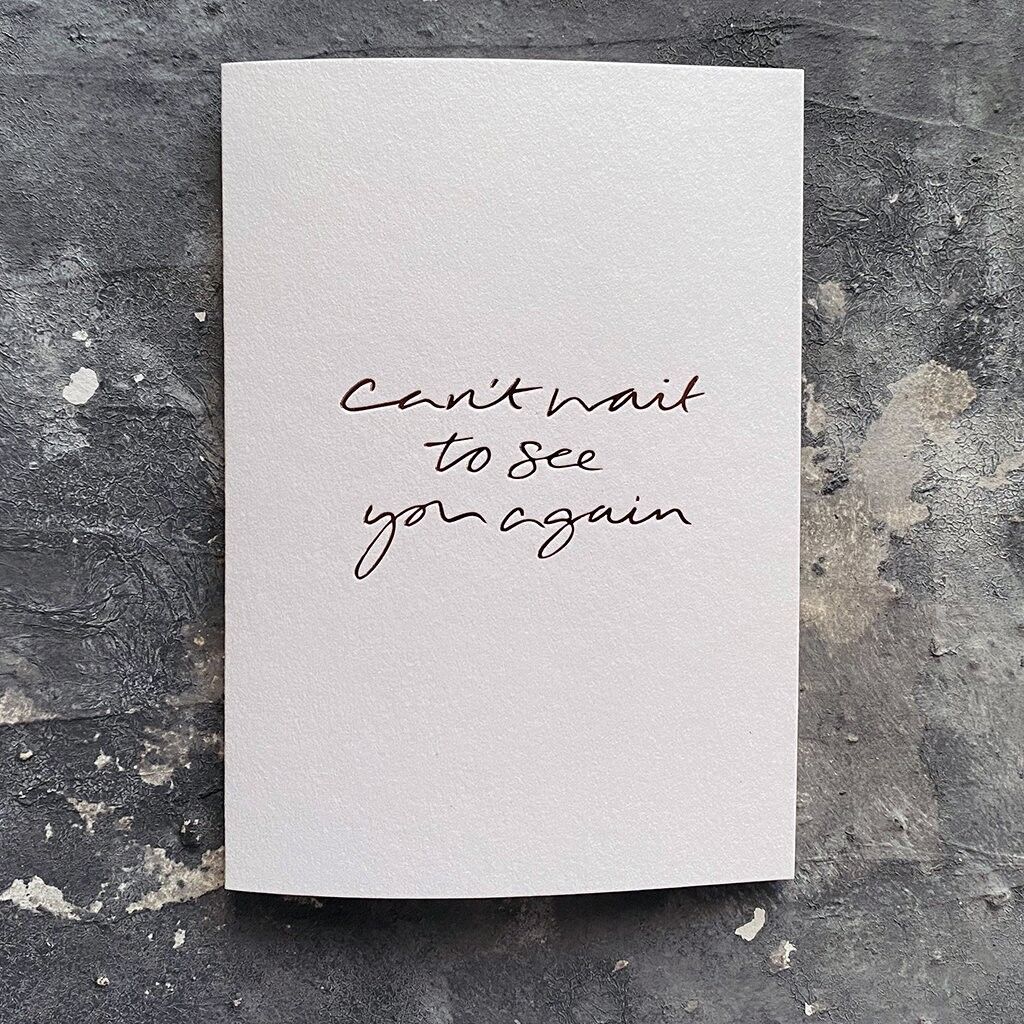 Can't wait
to see
you again